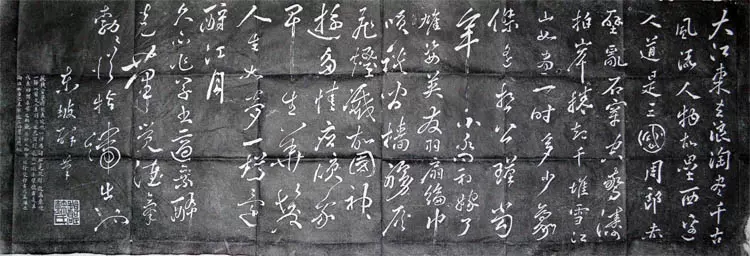 大江東去浪淘盡千古
風流人物故壘西邊
人道是三國周郎赤
壁亂石穿空驚濤
拍岸捲起千堆雪江
山如畫一時多少豪
傑遙想公瑾當
年小喬初嫁了
雄姿英發羽扇綸巾
談笑間檣艣灰
飛煙滅故國神
遊多情應笑我
早生華髮
人生如夢一樽還
酹江月
久不作草書適乘醉
走筆覺酒氣
勃勃從指端出也
東坡醉筆